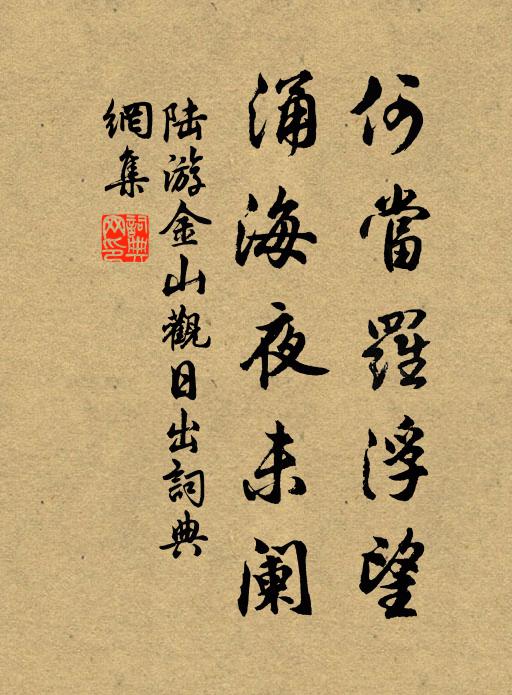 何當羅浮望
涌海夜未阑
陆游金山觀日出詞典
網集
詞典网印